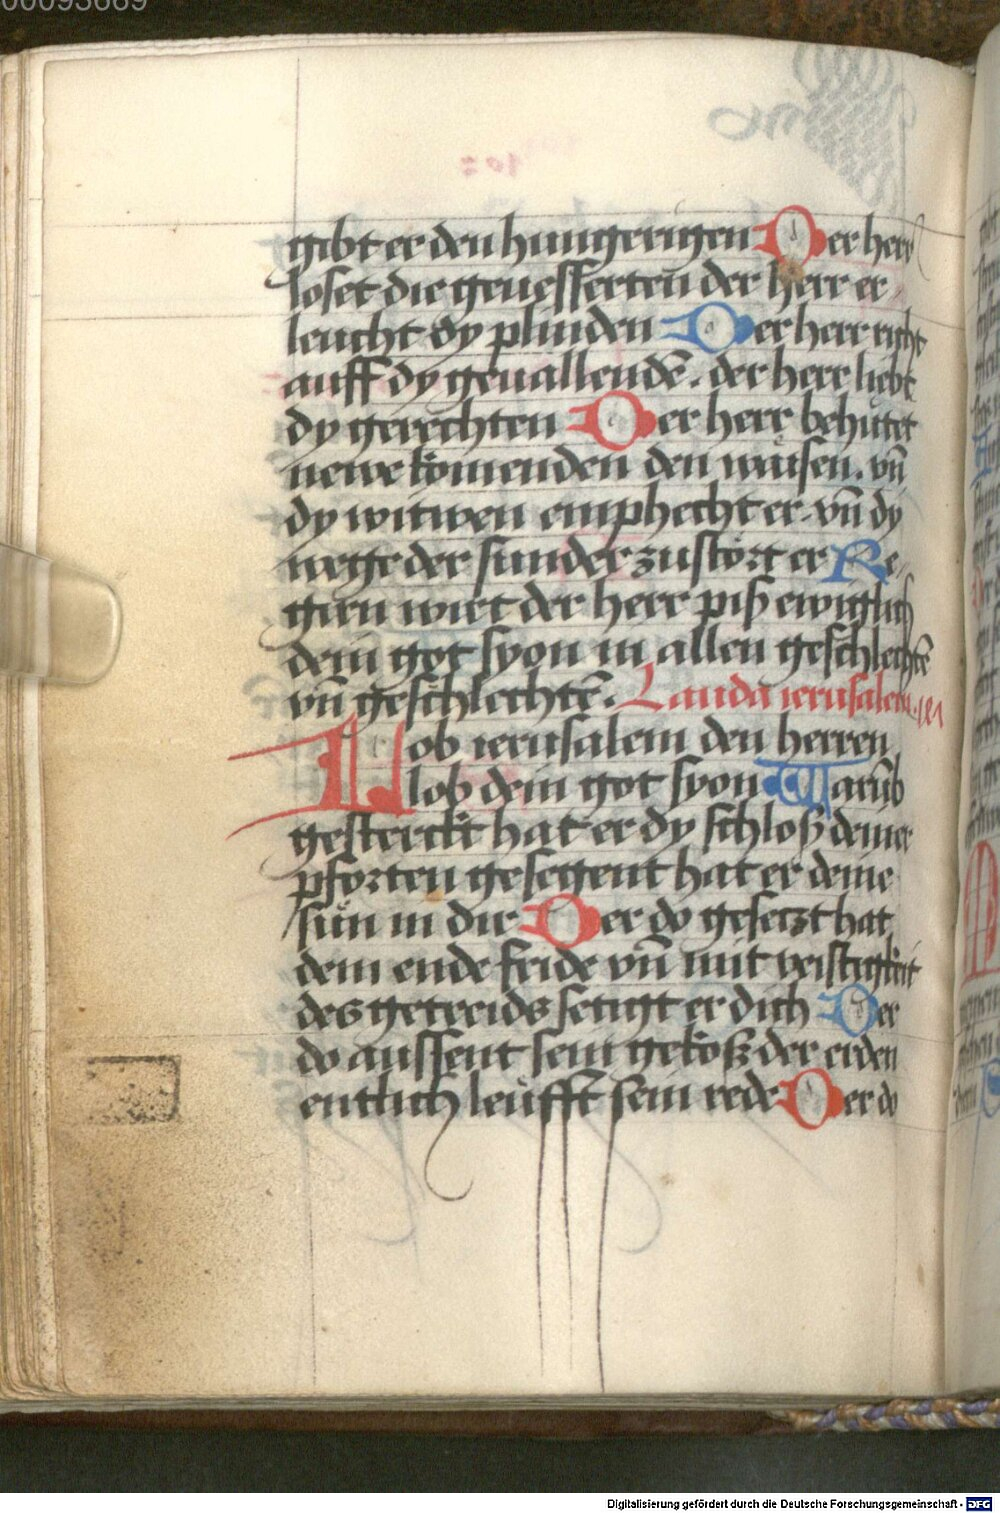 00093669
gibt er den hungerigen Der herr
loset die geuesserten der herr er
leucht dy plinden Der herr richt
auff dy geuallendē. der herr liebt
dy gerechten Der herr behütet
newe kömenden den waisen. vn̄
dy witwen emphecht er vn̄ dy
wege der sunder zustört er Re
girn wirt der herr piß ewiglich
dein got syon in allen geschlechtē
vn̄ geschlechtē. Lauda ierusalem
Lob ierusalem den herren
lob dein got syon Warūb
gesterckt hat er dy schloß deiner
pforten gesegent hat er deine
sün in dir Der do gesetzt hat
dein ende fride vn̄ mit veistigkeit
des getreids setigt er dich Der
do aussent sein gekoß der erden
entlich leüfft sein rede Der do
Digitalisierung gefördert durch die Deutsche Forschungsgemeinschaft - DFG